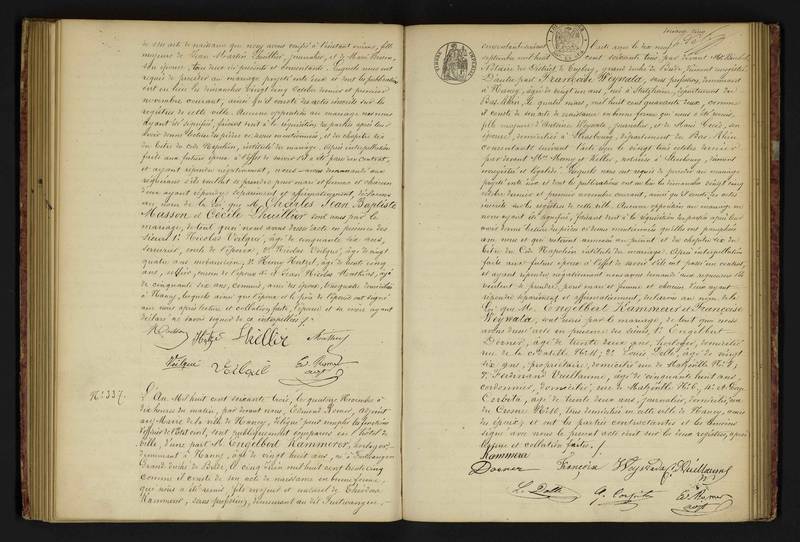 de son acte de naissance que nous avons
de Jean Martin Lhuillier, journalier, et de Marie
son épouse, tous deux ci présents et consentants. Lesquels nous ont
requis de procéder au mariage projeté entre eux et dont les publications
ont eu lieu les dimanches vingt cinq octobre dernier et premier
novembre courant, ainsi qu'il conste des actes inscrits sur les
registres de cette ville. Aucune opposition au mariage ne nous
ayant été signifiée, faisant droit à la réquisition des parties après leur
avoir donné lecture des pièces ci-dessus mentionnées, et du chapitre six
du titre du Code Napoléon, intitulé du mariage. Après interpellation
faite aux futurs époux à l'effet de savoir s'il a été passé un contrat,
et ayant répondu négativement, nous avons demandé aux
requérants s'ils veulent se prendre pour mari et femme et chacun
d'eux ayant répondu séparément et affirmativement, déclarons
au nom de la loi que M. Charles Jean Baptiste
Masson et Cécile Lhuillier sont unis par le
mariage, de tout quoi nous avons dressé acte en présence des
sieurs 1° Nicolas Voilqué, âgé de cinquante six ans,
oncle de l'époux; 2° Nicolas Voilqué, âgé de vingt
quatre ans 3° Henry Hatzel, âgé de trente cinq
ans, cousin de l'époux et 4° Jean Nicolas Matthieu, âgé
de cinquante six ans, commis, ami des époux, tous quatre domiciliés
à Nancy, lesquels ainsi que l'époux et le père de l'épouse ont signé
avec nous après lecture et collation faite, l'épouse et sa mère ayant
déclaré ne savoir signer de ce interpellées /.
Masson Hatzel Lhuillier Matthieu
Voilqué Voilqué Ed.
adjt
N° 337.
L'An Mil huit cent soixante trois, le quatre Novembre à
dix heures du matin, par devant nous, Edmond adjoint
au Maire de la ville de Nancy, délégué pour remplir les fonctions
d'officier de l'état civil, sont publiquement comparus en l'hôtel de
ville, d'une part M. Engelbert Kammerer, horloger,
demeurant à Nancy, âgé de vingt huit ans, né à Furtwangen
Grand duché de Bade, le cinq juin mil huit cent trente cinq
comme il conste de son acte de naissance en bonne forme,
que nous a été remis, fils majeur et naturel de Theodora
Kammerer, sans profession, demeurant au dit Furtwangen,
consentante suivant acte reçu le dix neuf
septembre mil huit cent soixante trois par devant
notaire du District de grand duché de Bade, dûment
D'autre part Françoise Weywada, sans profession, demeurant
à Nancy, âgée de vingt un ans, née à département du
Bas-Rhin, le quatre mars, mil huit cent quarante deux, comme
il conste de son acte de naissance en bonne forme qui nous a été remis,
fille majeure d'Antoine Weywada, journalier, et de Marie son
épouse, domiciliés à Strasbourg, département du Bas-Rhin
consentants suivant l'acte reçu le vingt trois octobre dernier
par devant Mes et Keller, notaires à Strasbourg, dûment
enregistré et légalisé. Lesquels nous ont requis de procéder au mariage
projeté entre eux et dont les publications ont eu lieu les dimanches vingt cinq
octobre dernier et premier novembre courant, ainsi qu'il conste des actes
inscrits sur les registres de cette ville. Aucune opposition au mariage ne
nous ayant été signifiée, faisant droit à la réquisition des parties après leur
avoir donné lecture des pièces ci-dessus mentionnées
et du chapitre six du
titre du Code Napoléon intitulé du mariage. Après interpellation
faite aux futurs époux à l'effet de savoir s'il a été passé un contrat,
et ayant répondu négativement nous avons demandé aux requérants s'ils
veulent se prendre pour mari et femme et chacun d'eux ayant
répondu séparément et affirmativement, déclarons au nom de la
loi que M. Engelbert Kammerer et Françoise
Weywada sont unis par le mariage, de tout quoi nous
avons dressé acte en présence des sieurs, 1° Engelbert
Dorner, âgé de trente deux ans, horloger, domicilié
rue de la citadelle N° 11; 2° Louis Dellé, âgé de vingt
six ans, propriétaire, domicilié rue de Malzéville N° 8;
3° Ferdinand Vuillaume, âgé de cinquante huit ans
cordonnier, domicilié, rue de Malzéville N° 6, 4° et
âgé de trente deux ans, journalier, domicilié rue
du Crosne N° 10, tous domiciliés en cette ville de Nancy, amis
des époux, et ont les parties contractantes et les témoins
signé avec nous le présent acte inscrit sur les deux registres, après
lecture et collation faites /.
Kammerer
Dorner Françoise Weywada F. Vuillaume
Ed.
adjt